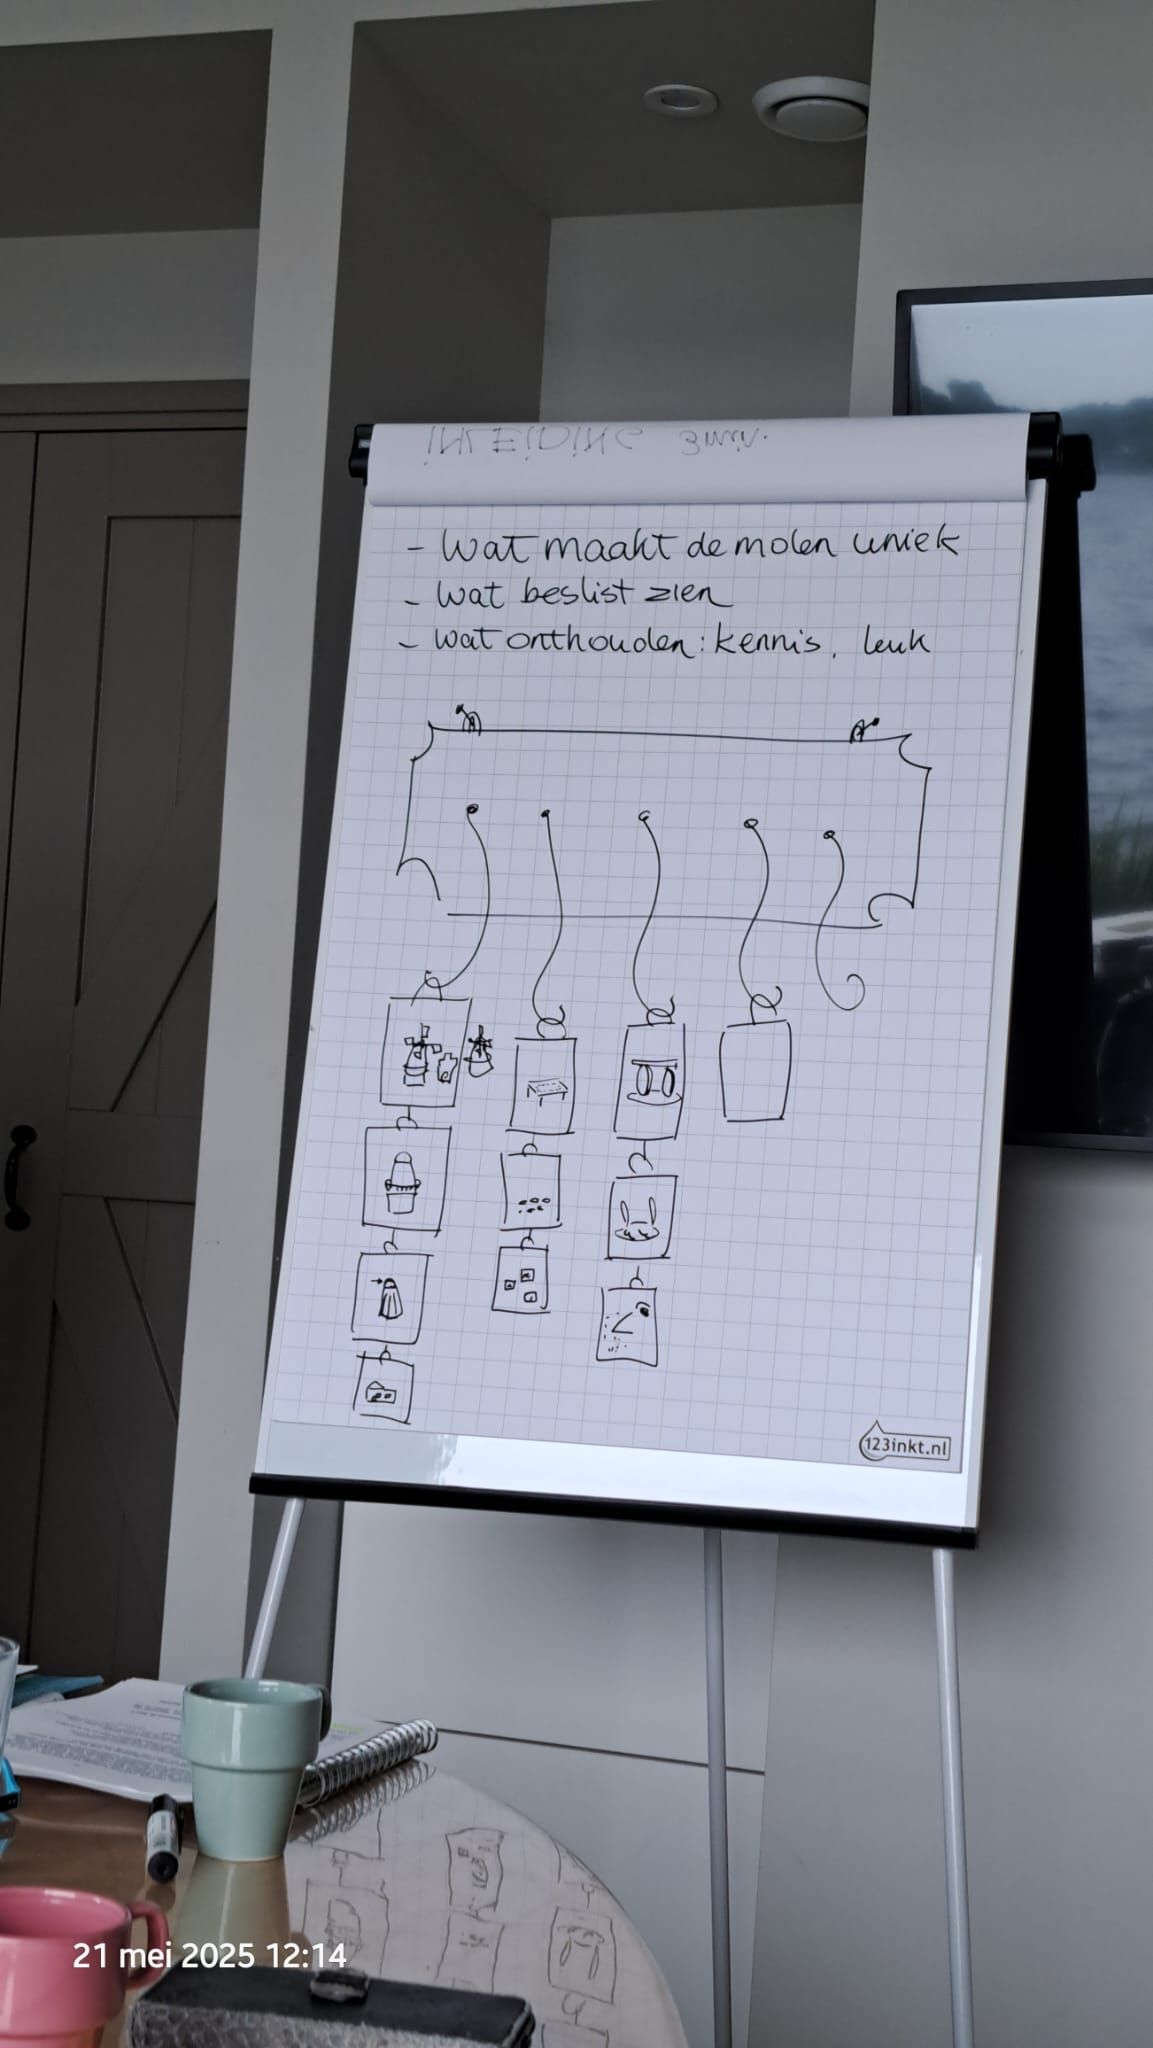 INLEIDING 3 min.
- Wat maakt de molen uniek
- Wat beslist zien
- Wat onthouden: kennis, leuk
123inkt.nl
21 mei 2025 12:14